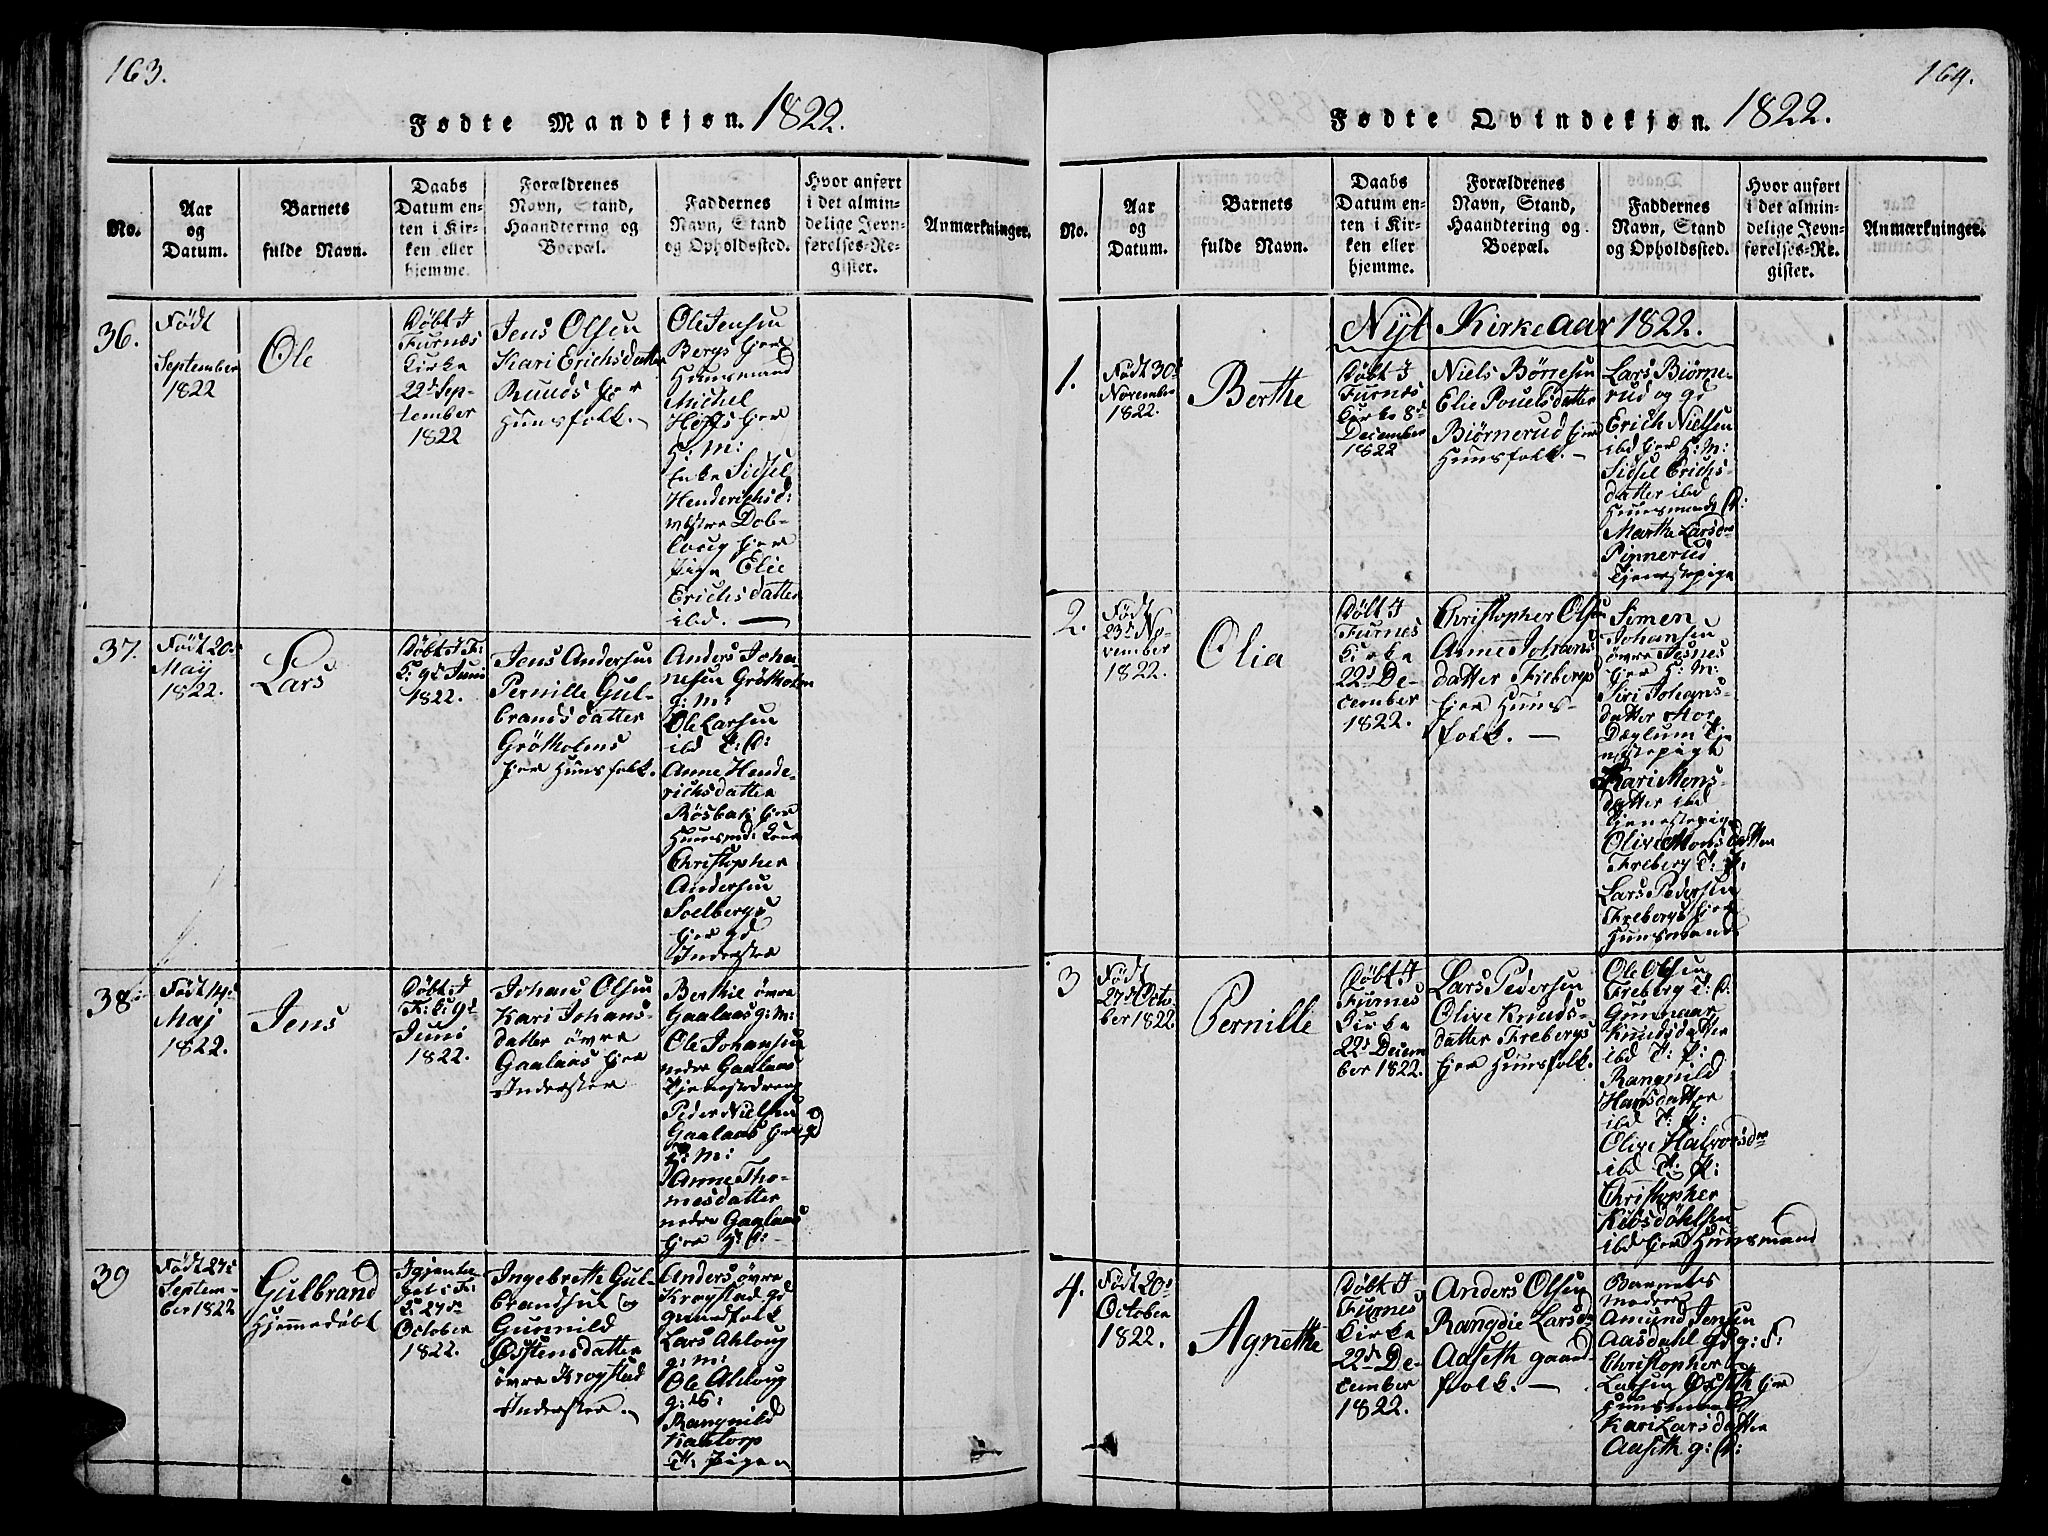 163.
Fødte Mandkjøn. 1822.
No.
Aar
og
Datum.
Barnets
fulde Navn.
Daabs
Datum en-
ten i Kir-
ken eller
hjemme.
Forældrenes
Navn, Stand,
Haandtering og
Boepæl.
Faddernes
Navn, Stand
og Opholdssted.
Hvor anført
i det almin-
delige Jevn-
førelses-Re-
gister.
Anmærkninger.
36.
Født
September
1822
Ole
Døbt I
Furnæs
Kirke
22d Sep-
tember
1822
Jens Olsen
Kari Erichsdatter
Ruuds Eier
Huusfolk.
Ole Jensen
Bergs Eier
Huusmand
Michel
Hoffs Eier
H: M:
Enke Sidsel
Henderichsd:
vestre Dob-
loug Eier
Pige Elie
Erichsdatter
ibd.
37.
Født 20d
Maÿ
1822.
Lars
Døbt I F:
K: 9d Juni
1822.
Jens Andersen
Pernille Gul-
brandsdatter
Grötholms
Eier Huusfolk.
Anders Joha-
nesen Grötholm
g: m:
Ole Larsen
ibd
Anne Hende-
richsdatter
Rösbak Eier
Huusmd: Kone
Christopher
Andersen
Soelbergs
Eier gd
Inderster
38
Født 14d
Maj
1822.
Jens
Døbt I
F: K: 9d
Juni
1822.
Johans Olsen
Kari Johans-
datter övre
Gaalaas Eier
Inderster
Berthe övre
Gaalaas g: m:
Ole Johansen
nedre Gaalaas
Tjenestedreng
Peder Nielsen
Gaalaas Eier gd
H: M:
Anne Tho-
mesdatter
nedre Gaalaas
Eier
39
Født 27d
Septem-
ber 1822
Gulbrand
Hjemmedöbt
Igjenta-
get i F:
K: 27de
October
1822.
Ingebreth Gul-
brandsen og
Gunnild
Östensdatter
övre Krogstad
Inderster.
Anders övre
Krogstad gd
gaardfolk
Lars Ahloug
g: m:
Ole Ahloug
Rangnild
Kaatorp
T: Pigen
164.
Fødte Qvindekjøn. 1822.
No.
Aar
og
Datum.
Barnets
fulde Navn.
Daabs
Datum en-
ten i Kir-
ken eller
hjemme.
Forældrenes
Navn, Stand,
Haandtering og
Boepæl.
Faddernes
Navn, Stand
og Opholdssted.
Hvor anført
i det almin-
delige Jevn-
førelses-Re-
gister.
Anmærkninger.
Nyt Kirkeaar 1822.
1.
Født 30d
November
1822.
Berthe
Døbt I
Furnes
Kirke 8d
December
1822
Niels Börresen
Elie Pouelsdatter
Biörnerud Eier
Huusfolk.
Lars Biörne-
rud og gd
Erich Nielsen
ibd Eier H: M:
Sidsel Erichs-
datter ibd
Huusmands
Marthe Larsdr
Pinnerud
Tjenestepige
2.
Født
23d No-
vember
1822.
Olia
Døbt I
Furnes
Kirke
22d De-
cember
1822.
Christopher Olsen
Anne Johans
datter Frebergs
Eier Huus-
folk.
Simen
Johansen
övre Jesnes
Eier H: M:
Siri Johans-
datter Stor
Dæglum Tje
nestepige
Kari Mons-
datter ibd
Tjenestepige
Olive Monsdatter
Freberg T: P:
Lars Pedersen
Frebergs Eier
Huusmand
3
Født
27d Octo
ber 1822.
Pernille
Døbt I
Furnes
Kirke
22d Decem
ber 1822.
Lars Pedersen
Olive Knuds-
datter Frebergs
Eier Huusfolk.
Ole Olsen
Freberg
Gunnaar
Knudsdatter
ibd T: P:
Rangnild
Hansdatter
ibd T: P:
Olive Halvorsdr
ibd T: P:
Christopher
ibd Eier Huusmand
4.
Født 20d
October
1822.
Agnethe
Døbt I
Furnes
Kirke
22de De-
cember
1822.
Anders Olsen
Rangdie Larsdr
Aaseth gaard
folk.
Barnets
Moder
Amund Jensen
Aasdahl
Christopher
Larsen Eier
Huusmand
Kari Larsdatter
Aaseth